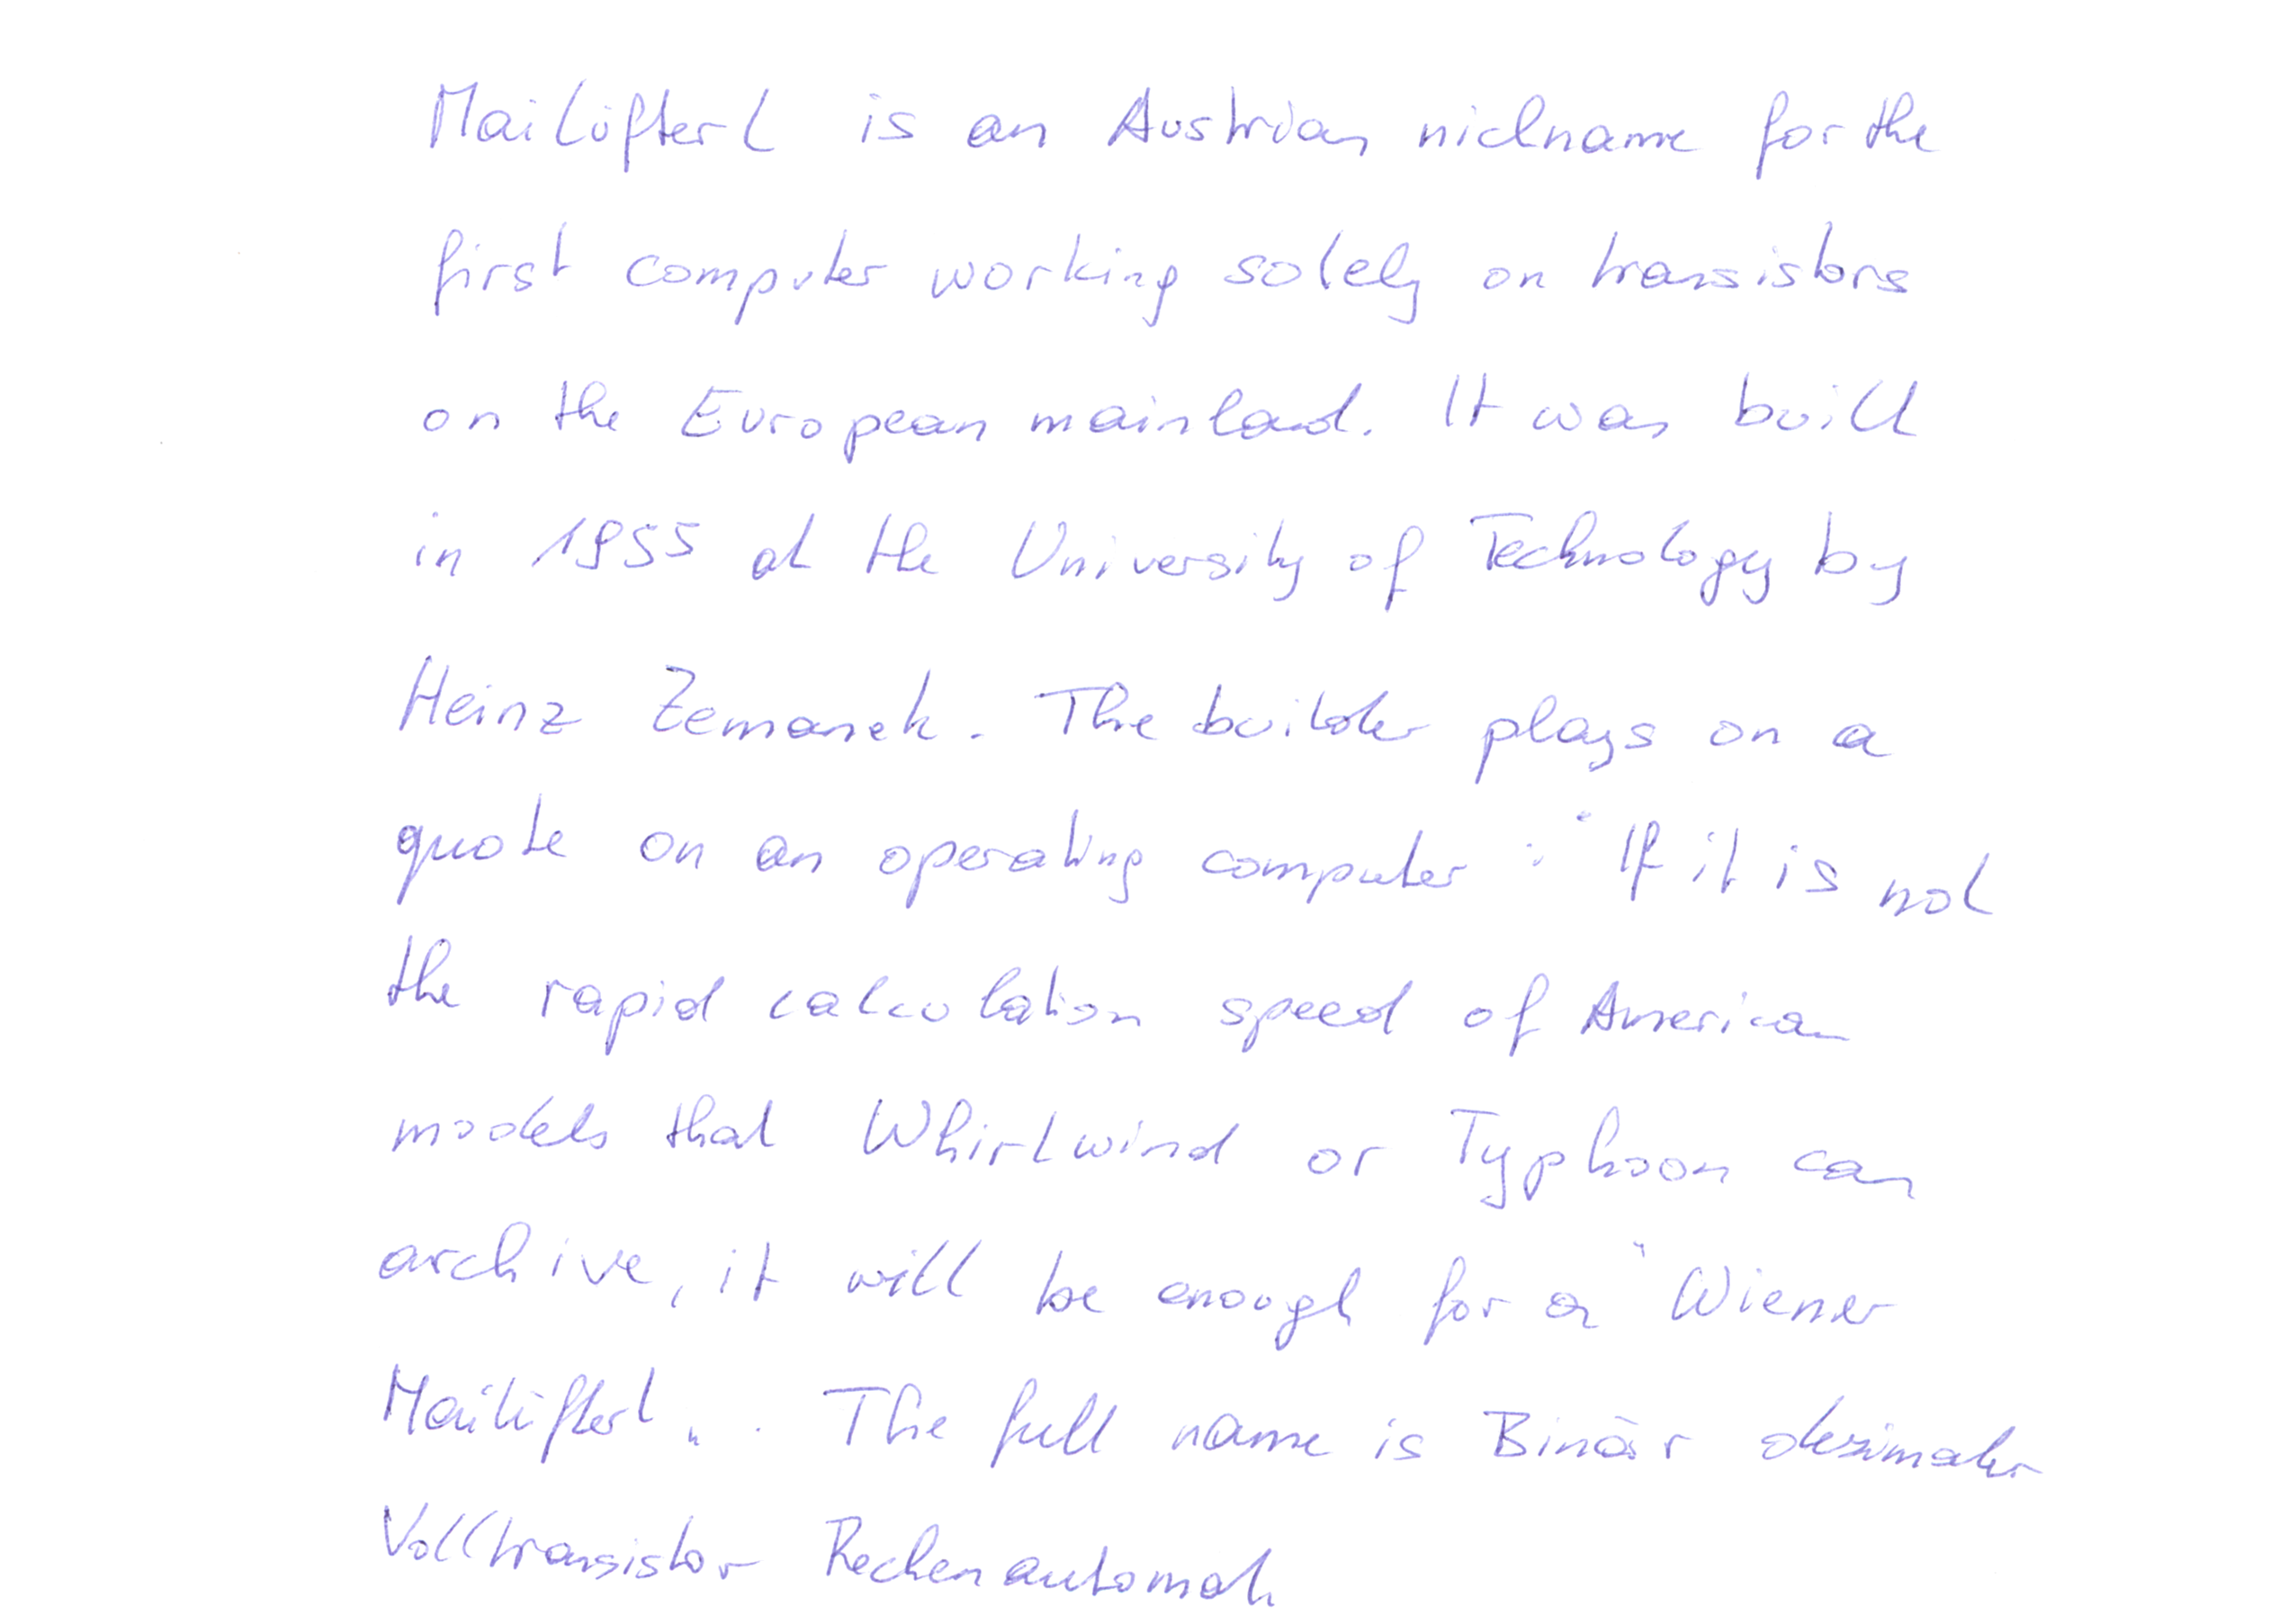 Mailüfterl is an Austrian nickname for the
first computer working solely on transistors
on the European mainland. It was built
in 1955 at the University of Technology by
Heinz Zemanek. The builder plays on a
quote on an operating computer: "If it is not
the rapid calculation speed of American
models that Whirlwind or Typhoon can
archive, it will be enough for a "Wiener
Mailüfterl". The full name is Binär dezimaler
Volltransistor Rechenautomat